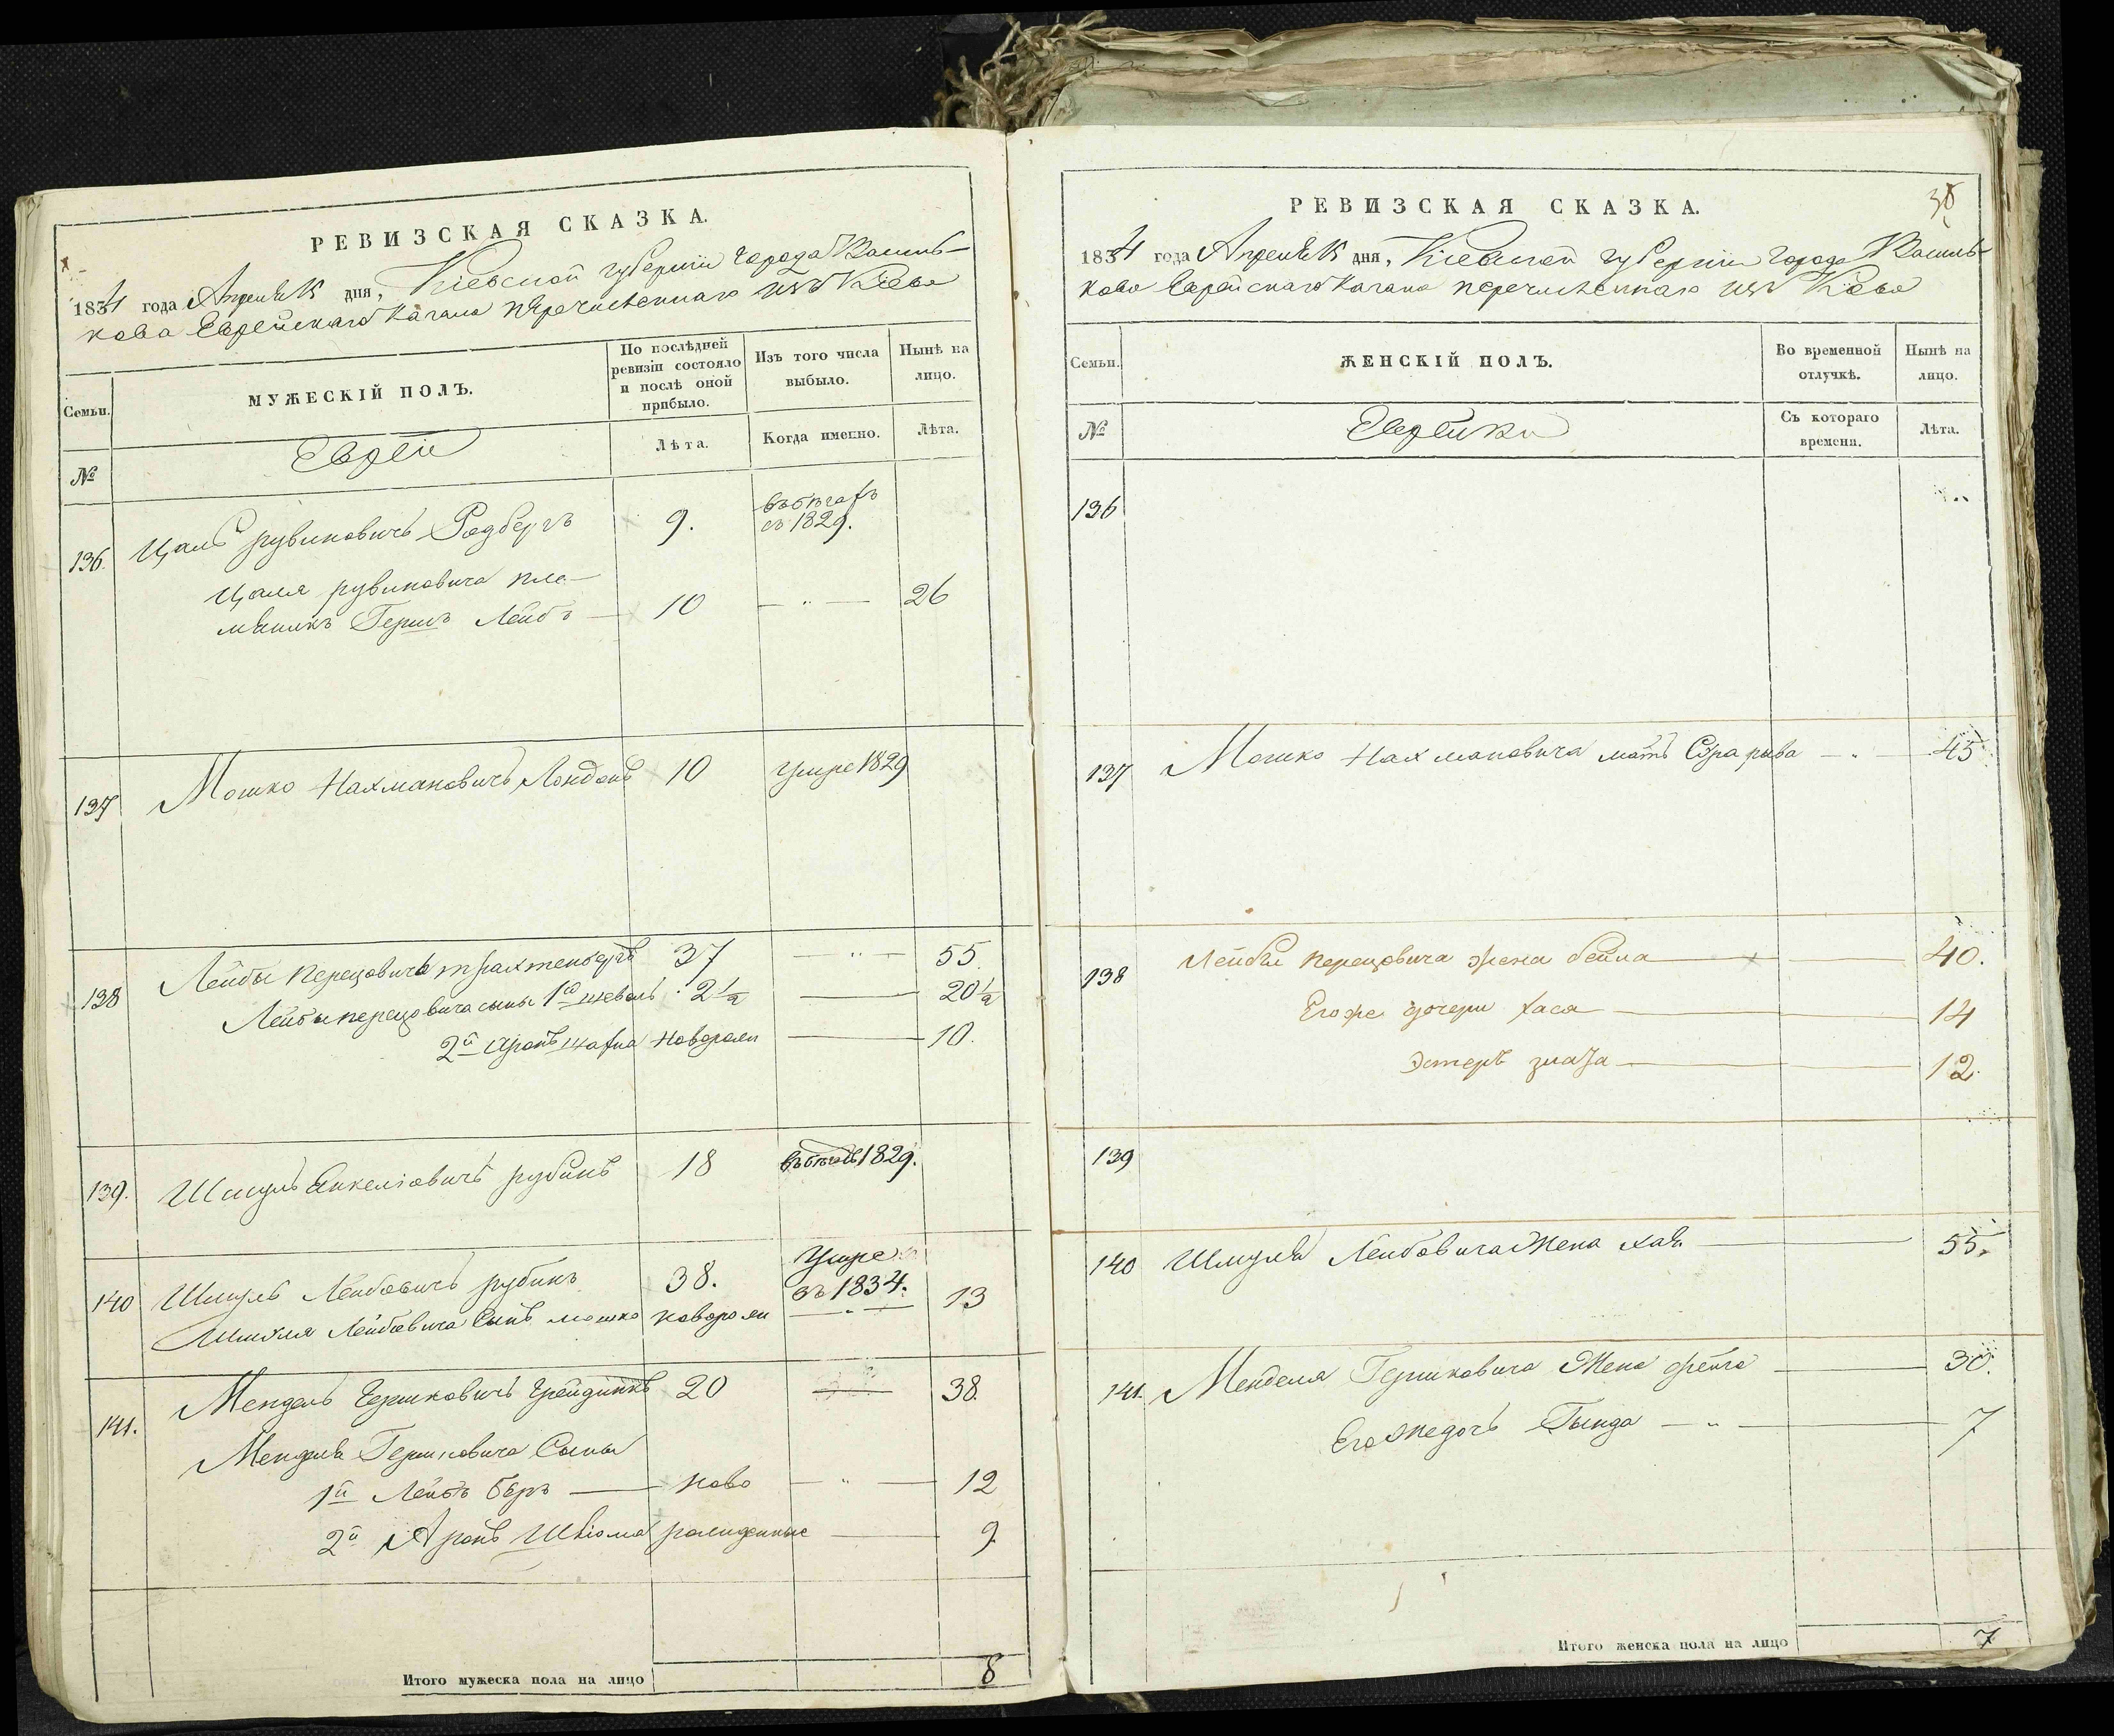 РЕВИЗСКАЯ СКАЗКА.
1834 года Апреля 15 дня, Кіевской губерніи города Василь-
кова Еврейскаго Кагала перечисленнаго изъ Кіева
Семьи.
МУЖЕСКІЙ ПОЛЪ.
По послѣдней ревизіи состояло и послѣ оной прибыло.
Изъ того числа выбыло.
Нынѣ на лицо.
№
Евреи
Лѣта.
Когда именно.
Лѣта.
136. Цаль рувиновичъ Родбергъ 9. въ бѣгахъ съ 1829.
Цаля рувиновича пле-
мяникъ Гершъ Лейбъ 10 — „ — 26
137 Мошко Нахмановичъ Лондонъ 10 Умре 1829
138 Лейбы Перецовичъ трахтенбергъ 37 — „ — 55
Лейбы перецовича сыны 1й 2½ — 20½
2й Аронъ новорож — 10.
139. Шмуль Янкеліовичъ рубинъ 18 въ бѣгахъ 1829.
140 Шмуль Лейбовичъ рубинъ 38. Умре въ 1834.
Шмуля Лейбовича сынъ мошко новорож — „ — 13
141. Мендель Гершковичъ 20 — 38.
Менделя Гершковича Сыны
1й Лейбъ Беръ — ново — „ — 12
2й Аронъ Шліома рожденные — 9
Итого мужеска пола на лицо 8
РЕВИЗСКАЯ СКАЗКА.
1834 года Апреля 15 дня, Кіевской губерніи города Василь-
кова Еврейскаго Кагала перечисленнаго изъ Кіева
Семьи.
ЖЕНСКІЙ ПОЛЪ.
Во временной отлучкѣ.
Нынѣ на лицо.
№
Еврейки
Съ котораго времени.
Лѣта.
136
137 Мошко Нахмановича мать Сура рыва — „ — 45
138 Лейбы Перецовича жена бейла — 40.
Егоже дочери хася — 14
Эстеръ злата — 12.
139
140 Шмуля Лейбовича Жена хая — 55.
141. Менделя Гершковича Жена фейга — 30.
Егоже дочь Гында — „ — 7
Итого женска пола на лицо 7